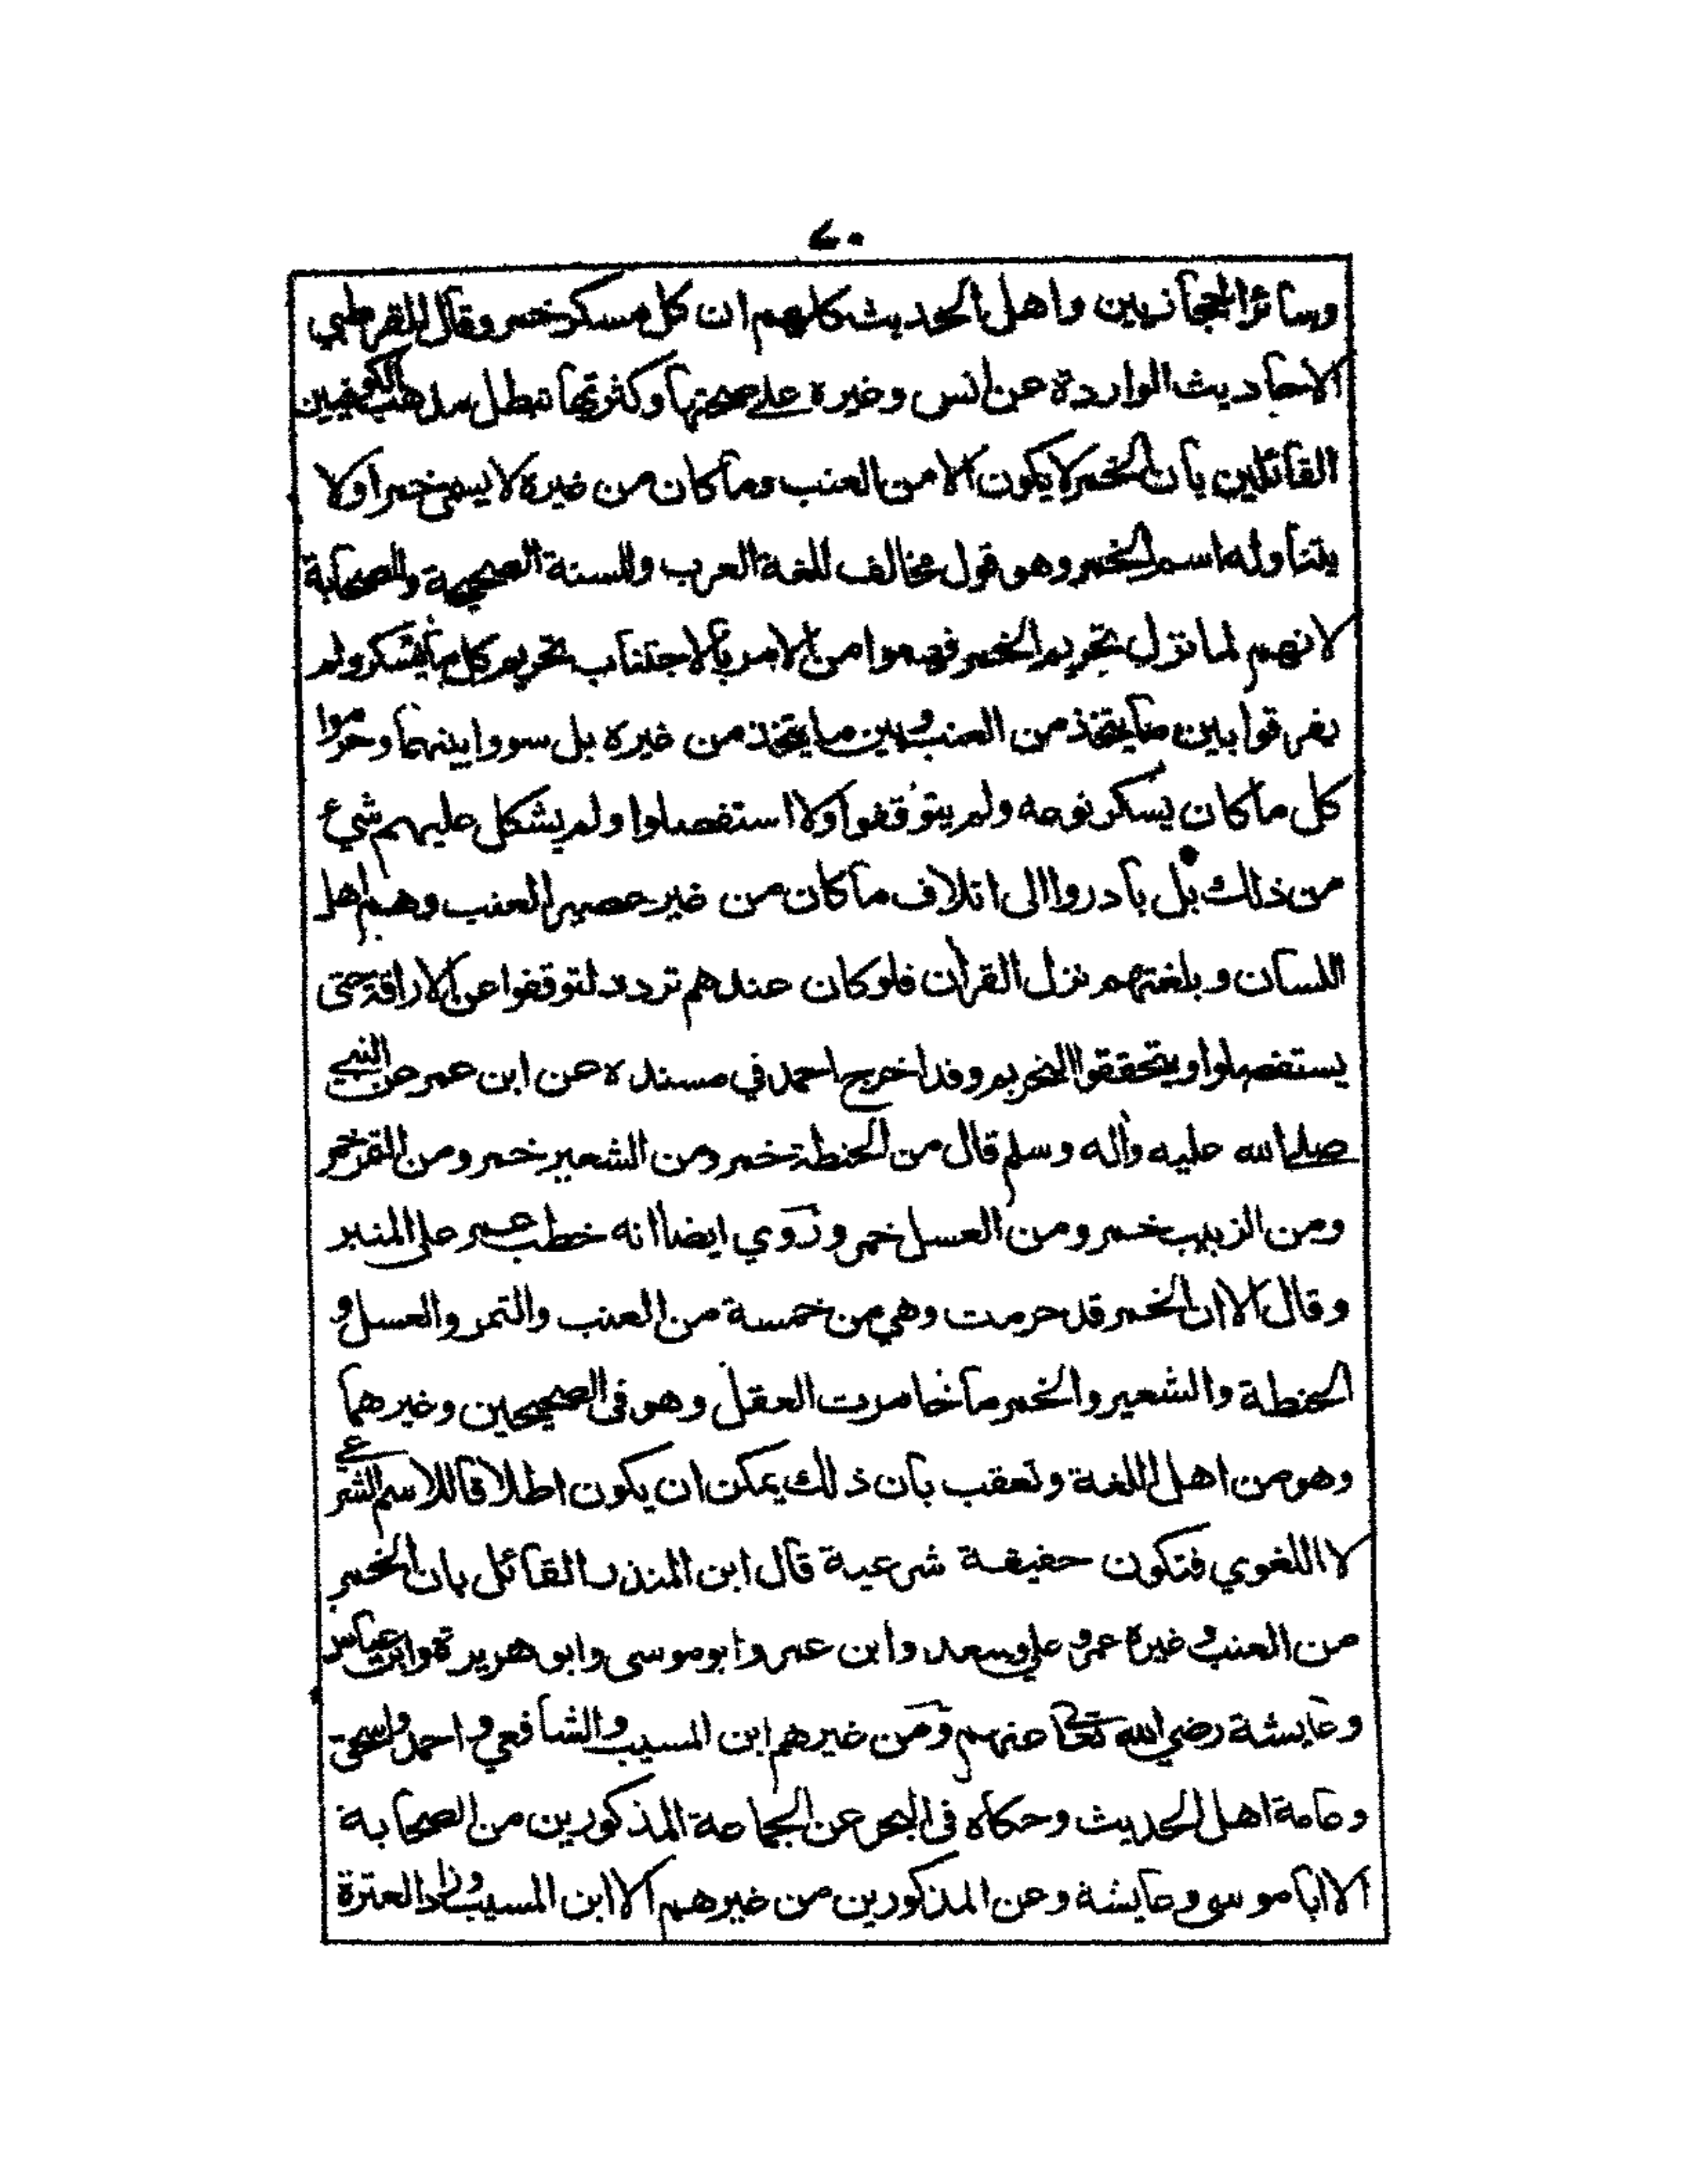 ٤٠
وسائر الحجازيين واهل الحديث كلهم ان كل مسكر خمر وقال القرطبي
الاحاديث الواردة عن انس وغيره على صحتها وكثرتها تبطل مذهب الكوفيين
القائلين بأن الخمر لا يكون الا من العنب وما كان من غيره لا يسمى خمرا ولا
يتناوله اسم الخمر وهو قول مخالف للغة العرب وللسنة الصحيحة وللصحابة
لانهم لما نزل تحريم الخمر فهموا من الامر بالاجتناب تحريم كل ما يسكر ولم
يفرقوا بين ما يتخذ من العنب وبين ما يتخذ من غيره بل سووا بينهما وحرموا
كل ما كان يسكر نوعه ولم يتوقفوا ولا استفصلوا ولم يشكل عليهم شيء
من ذلك بل بادروا الى اتلاف ما كان من غير عصير العنب وهم اهل
اللسان وبلغتهم نزل القرآن فلو كان عندهم تردد لتوقفوا عن الاراقة حتى
يستفصلوا ويتحققوا التحريم وقد اخرج احمد في مسنده عن ابن عمر عن النبي
صلى الله عليه وآله وسلم قال من الحنطة خمر ومن الشعير خمر ومن التمر خمر
ومن الزبيب خمر ومن العسل خمر وروي ايضا انه خطب عمر على المنبر
وقال الا ان الخمر قد حرمت وهي من خمسة من العنب والتمر والعسل و
الحنطة والشعير والخمر ما خامرت العقل وهو فى الصحيحين وغيرهما
وهو من اهل اللغة وتعقب بان ذلك يمكن ان يكون اطلاقا للاسم الشرعي
لا اللغوي فتكون حقيقة شرعية قال ابن المنذر القائل بان الخمر
من العنب وغيره عمر وعلي وسعد وابن عمر وابو موسى وابو هريرة وابن عباس
وعايشة رضي الله تعالى عنهم ومن غيرهم ابن المسيب والشافعي واحمد واسحق
وعامة اهل الحديث وحكاه فى البحر عن الجماعة المذكورين من الصحابة
الا ابا موسى وعايشة وعن المذكورين من غيرهم الا ابن المسيب وزاد العترة